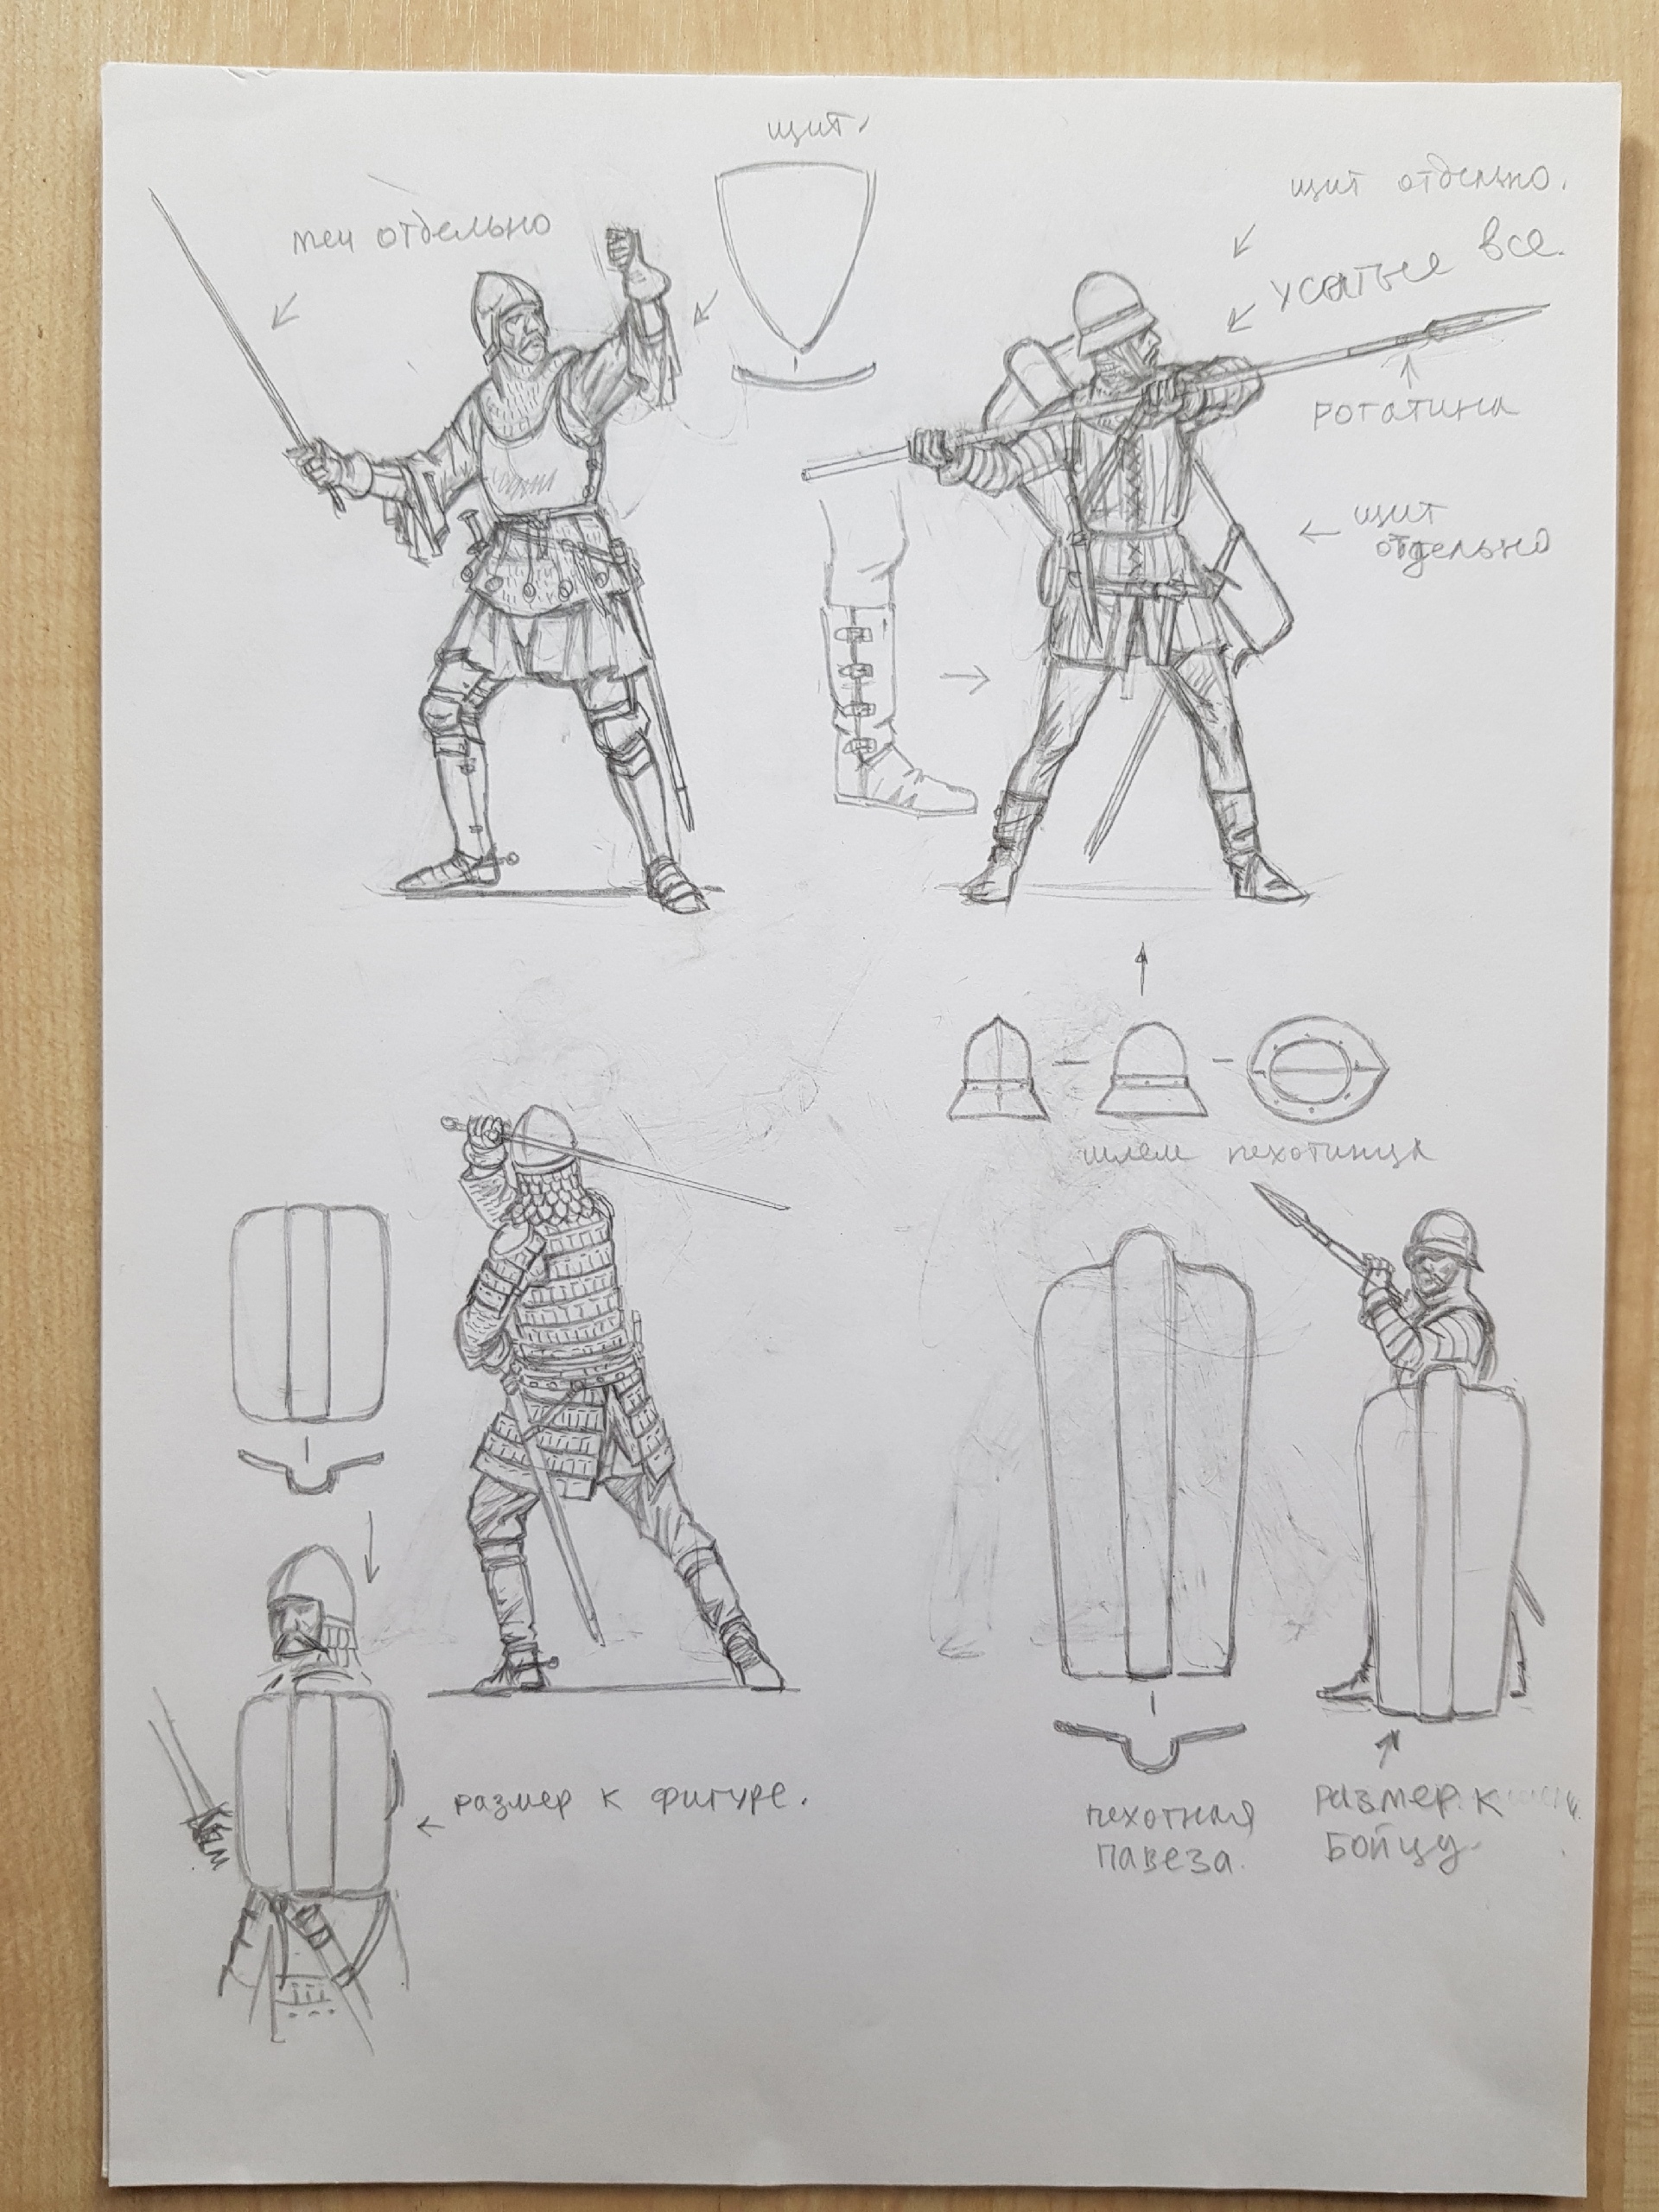 щит.
меч отдельно
щит отдельно.
усатые все.
рогатина
щит
отдельно
шлем пехотинца
размер к фигуре.
пехотная
павеза.
размер к
бойцу.